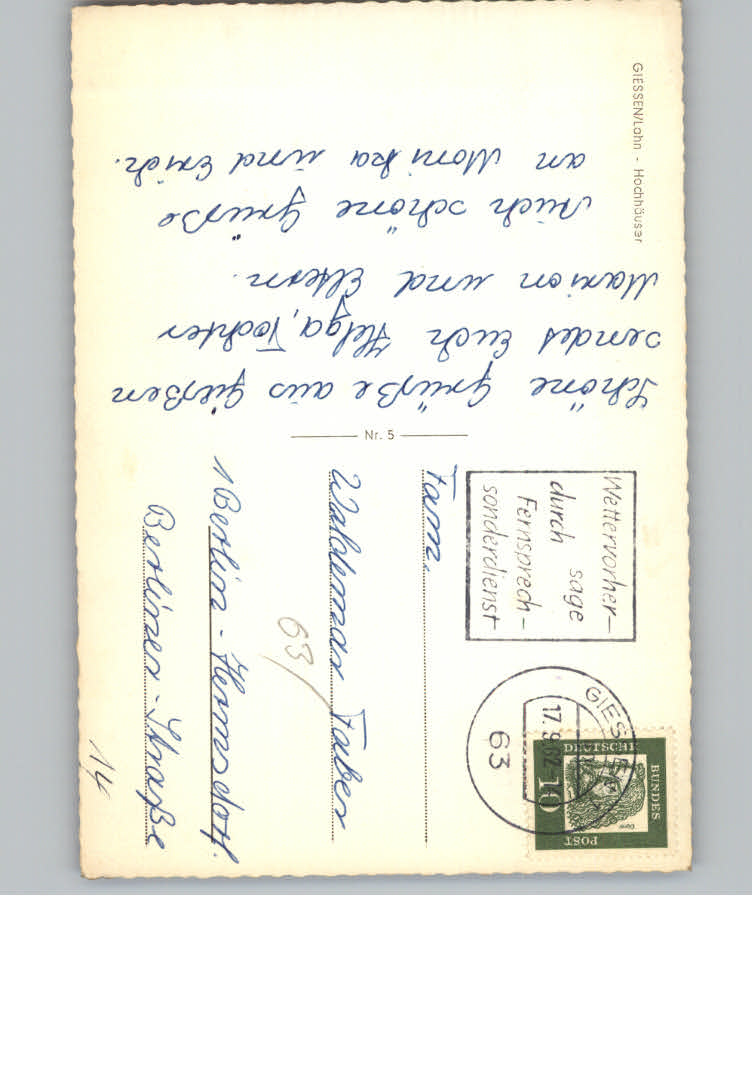 GIESSEN/Lahn - Hochhäuser
Schöne Grüße aus Gießen
sendet Euch Helga, Tochter
Marion und Eltern.
Auch schöne Grüße
an Monika und Erich.
Nr. 5
Wettervorher-
sage
durch
Fernsprech-
sonderdienst
GIESSEN
17.9.62
63
DEUTSCHE
BUNDES
POST
10
Dürer
Fam.
Waldemar Faber
63
1 Berlin - Hermsdorf.
Berliner - Straße
14